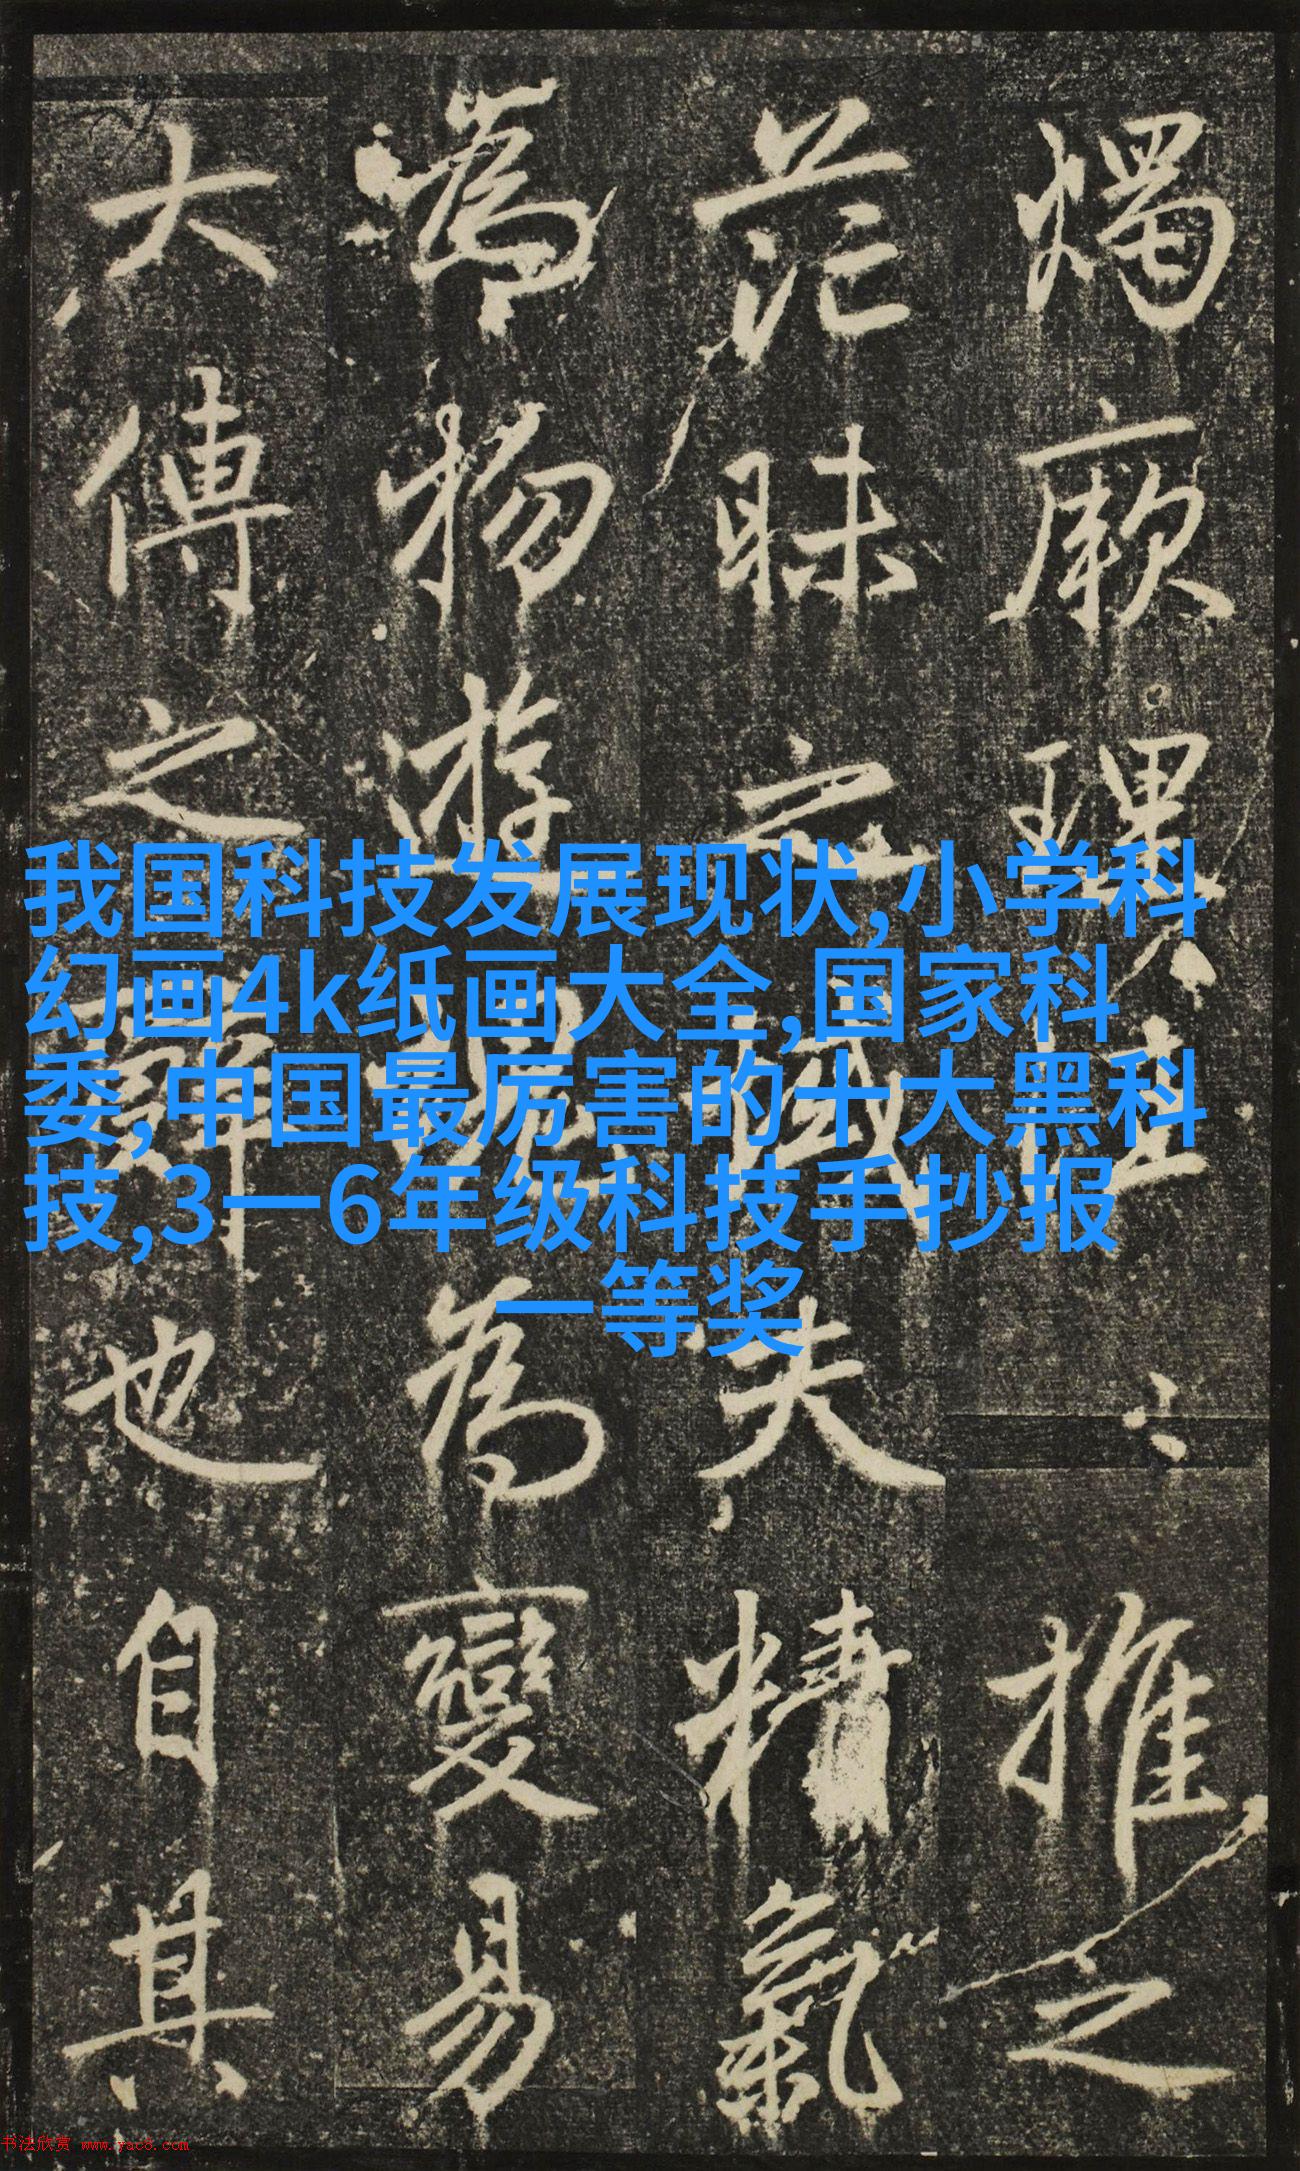 燭厥理
推之
茫昧之域夫精氣
為物遊魂為變易
大傳之辭也自其
我国科技发展现状,小学科
幻画4k纸画大全,国家科
委,中国最厉害的十大黑科
技,3一6年级科技手抄报
一等奖
书法欣赏 www.yac8.com